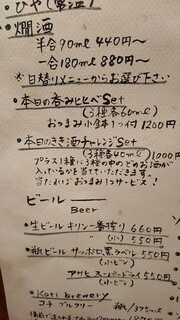 ・ひや(常温)
・燗酒
半合90ml 440円〜
一合180ml 880円〜
※日替りメニューからお選び下さい
・本日の呑みヒヒベSet
(3種各60ml)
おつまみ小鉢1つ付 1200円
・本日のきき酒チャレンジSet
(3種各40ml) 1000円
プラス1種に3種の中のどのお酒が
入っているか当てていただきます。
当たればおつまみ1つサービス!
ビール
Beer
・生ビール キリン一番搾り 660円
(小) 550円
・瓶ビール サッポロ黒ラベル 550円
(小ビン)
アサヒスーパードライ 550円
(小ビン)
・Koti brewery
コチ ブルワリー 瓶/375ml